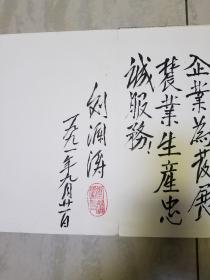 企業為發展
農業生產忠
誠服務！
劉潤濤
一九九一年九月廿一日